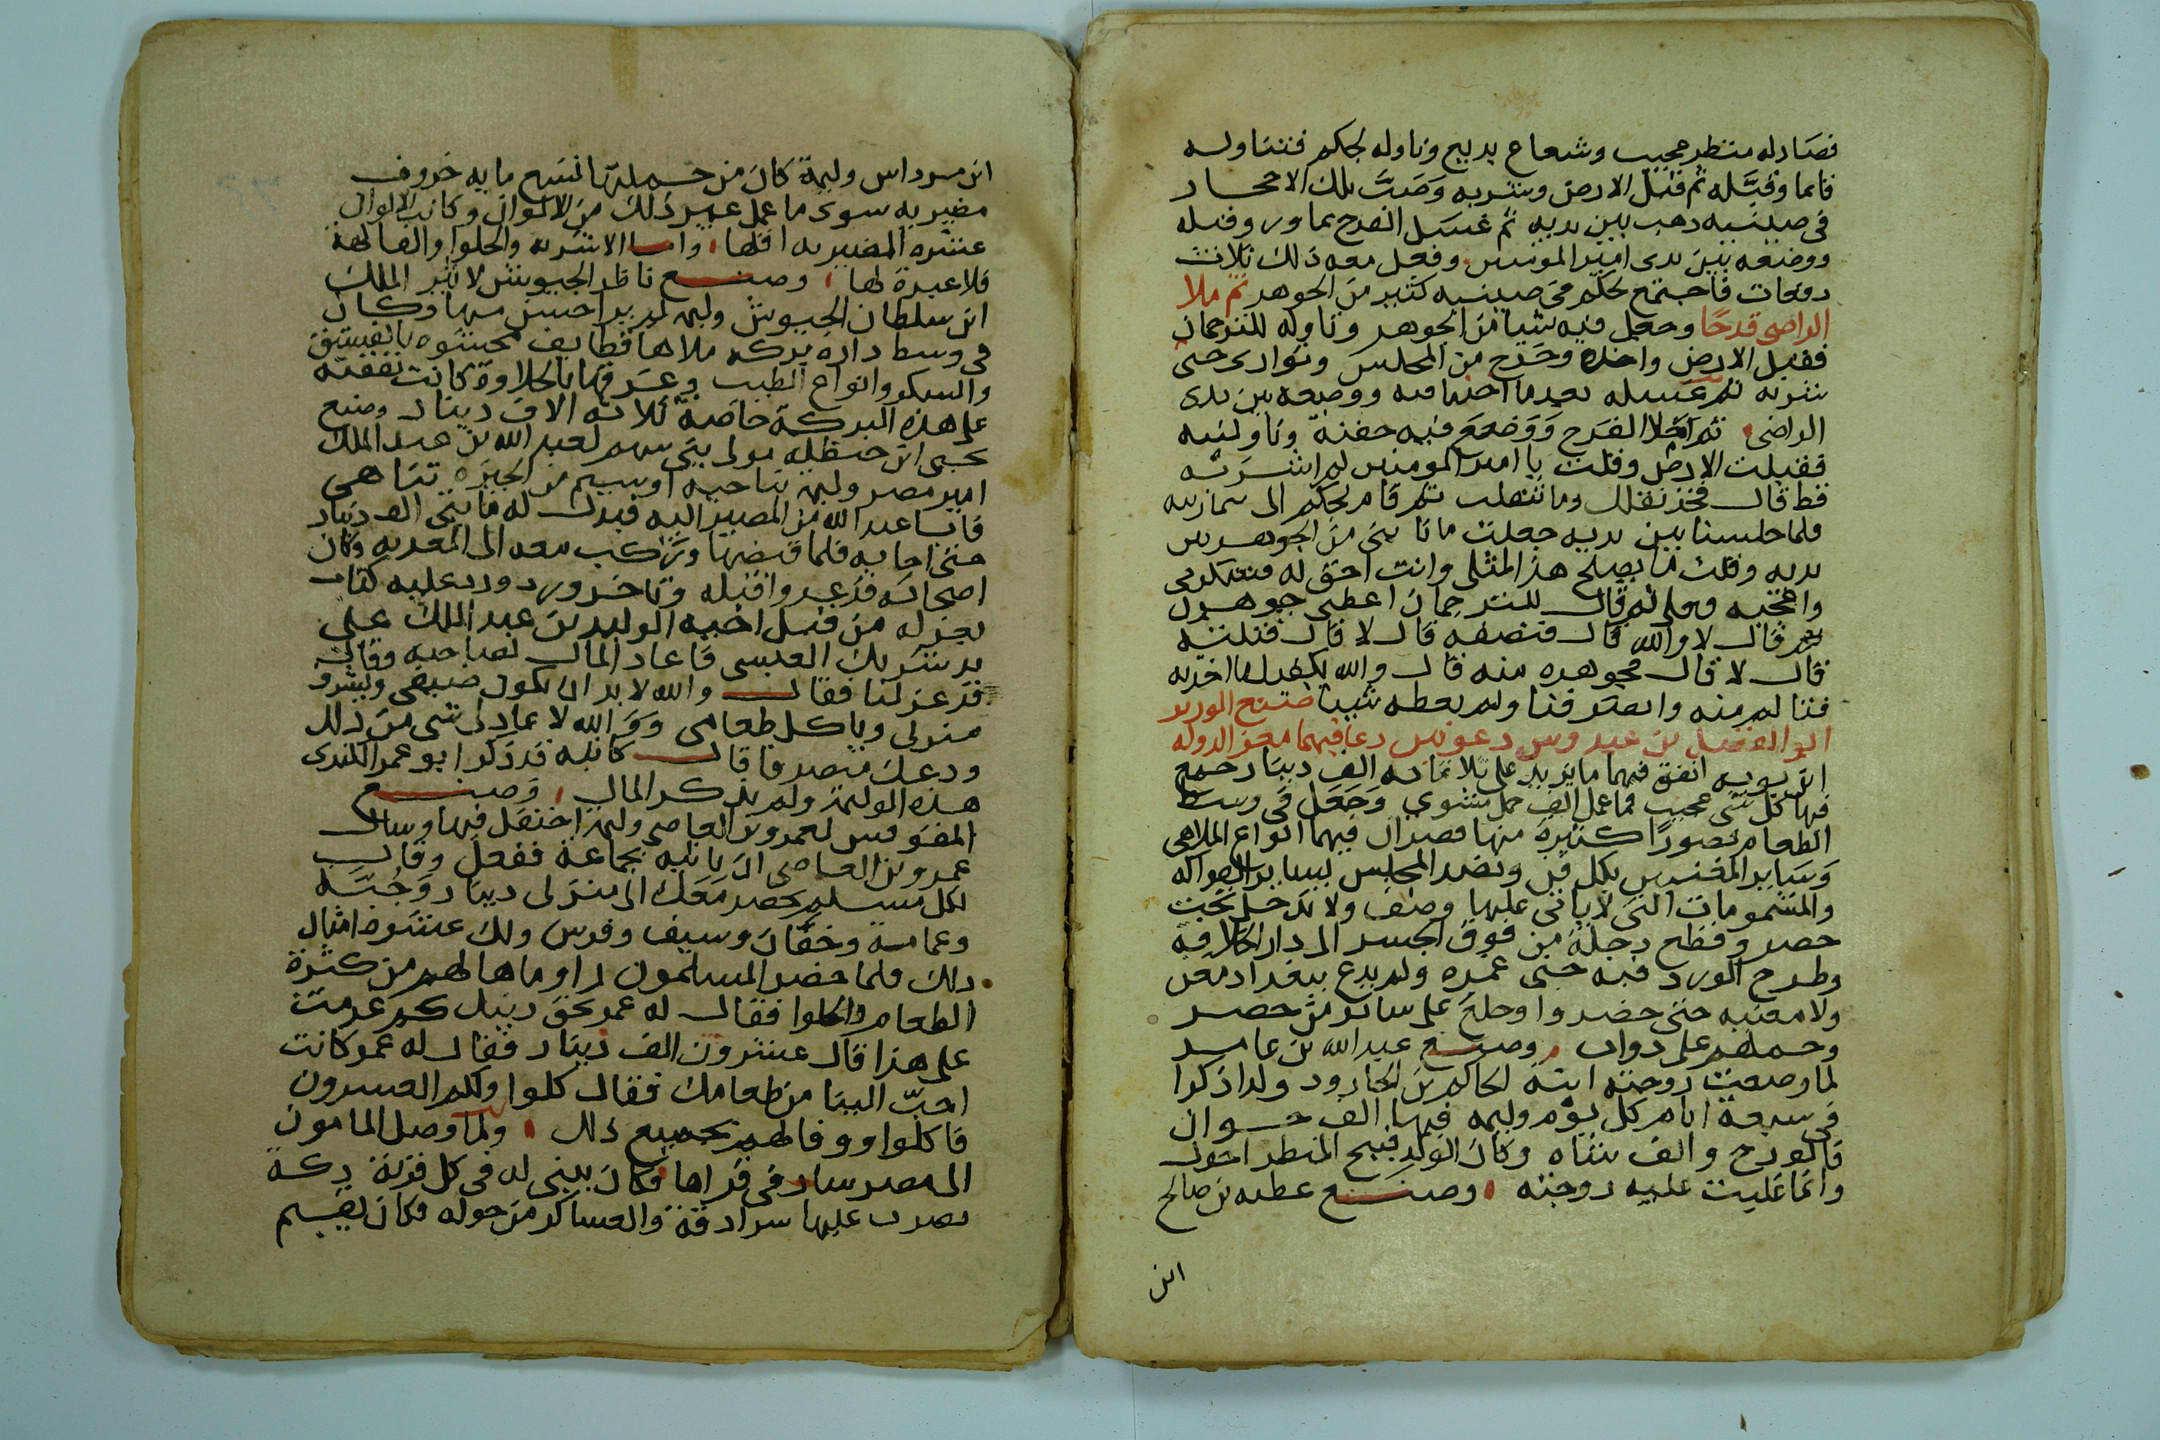 فصار له منظر عجيب وشعاع بديع وناوله لجكم فتناوله
قائما وقبَّله ثم قبل الارض وشربه وصَبَّ تلك الاحجار
في صينيه دهب بين يديه ثم غسل القدح بماورد وقبله
ووضعه بين يدى امير المومنين وفعل معه ذلك ثلاث
دفعات فاجتمع لجكم في صينيه كثير من الجوهر ثم ملا
الراضى قدحًا وجعل فيه شيا من الجوهر وناوله للترجمان
فقبل الارض واخذه وخرج من المجلس وتوارى حتى
شربه ثم غسله بعد ما اخذ ما فيه ووضعه بين يدى
الراضى ثم اخلا القدح ووضع فيه حفنة وناولنيه
فقبلت الارض وقلت يا امير المومنين لم اشربه
قط قال فخذ نقلك وما تنقلت ثم قام لجكم الى سمازيه
فلما جلسنا بين يديه جعلت ما نا بنى من الجوهر بين
يديه وقلت ما يصلح هذا لمثلى وانت احق له فتشكرنى
واعجبه فعلى ثم قال للترجمان اعطنى جوهرك
قال لا والله قال فنصفه قال لا قال فثلثه
قال لا قال فجوهره منه قال والله لا
فنا لم منه وافترقنا ولم يعطه شيا صنع الوزير
ابو الفضل بن عبدوس دعوتين دعا فيهما معز الدوله
ابن بويه انفق فيهما ما يزيد على ثلاثمائة الف دينار جمع
فيها كل شى عجيب فما عمل الف حمل مشوى وجعل في وسط
الطعام قصورًا كثيرة منها قصران فيهما انواع الملاهى
وساير المغنيين بكل فن ونضد المجلس بساير الفواكه
والمشمومات التى لا ياتى عليها وصف ولا تدخل تحت
حصر وقطع دجلة من فوق الجسر الى دار الخلافة
وطرح الورد فيه حتى غمره ولم يدع ببغداد مغن
ولا مغنيه حتى حضروا وخلع على ساير من حضر
وحملهم على دواب وصنع عبد الله بن عامر
لما وضعت زوجته ابنة الحاكم بن الجارود ولدا ذكرا
في سبعة ايام كل يوم وليمه فيها الف خوان
فالوذج والف شاه وكان الولد قبيح المنظر احول
وانما غلبت عليه زوجته وصنع عطيه بن صالح
ابن
ابن مرداس وليمة كان من جملتها تسع مايه خروف
مضيريه سوى ما عمل غير ذلك من الالوان وكانت الالوان
عشره المضيريه اقلها واما الاشربه والحلوا والفاكهة
فلا عبرة لها وصنع ناظر الجيوش لاثير الملك
ابن سلطان الجيوش وليمه لم ير احسن منها وكان
في وسط داره بركه ملاها قطايف محشوه بالفستق
والسكر وانواع الطيب وغرقها بالحلاوة كانت نفقته
على هذه البركة خاصة ثلاثه الاف دينار وصنع
يحيى ابن حنظله مولى بنى سهم لعبد الله بن عبد الملك
امير مصر وليمه بناحيه اوسيم من الجيزه تناهى
فابا عبد الله من المصير اليه فبذل له مايتى الف دينار
حتى اجابه فلما قبضها وركب معه الى المعديه وكان
اصحابه قد عدوا قبله وتاخر ورد عليه كتاب
بعزله من قبل اخيه الوليد بن عبد الملك على
يد شريك العبسى فاعاد المال لصاحبه وقال
قد عزلنا فقال والله لا بد ان تكون ضيفى وتشرف
منزلى وياكل طعامى ووالله لا عاد لى شى من ذلك
ودعك منصرفا قال كاتبه قد ذكر ابو عمر الكندى
هذه الوليمة ولم يذكر المال وصنع
المقوقس لعمرو بن العاصى وليمة احتفل فيها وسال
عمرو بن العاصى ان ياتيه بجماعة ففعل وقال
لكل مسلم يحضر معك الى منزلى دينار وجُبَّة
وعمامة وخفَّان وسيف وفرس ولك عشرة امثال
ذلك فلما حضر المسلمون راوا ما هالهم من كثرة
الطعام واكلوا فقال له عمرو بحق دينك كم غرمت
على هذا قال عشرون الف دينار فقال له عمرو كانت
احبّ الينا من طعامك فقال كلوا ولكم العشرون
فاكلوا ووفا لهم بجميع ذلك ولما وصل المامون
الى مصر سار في قراها فكان يبنى له في كل قرية دكة
يضرب عليها سرادقة والعساكر من حوله فكان يقيم